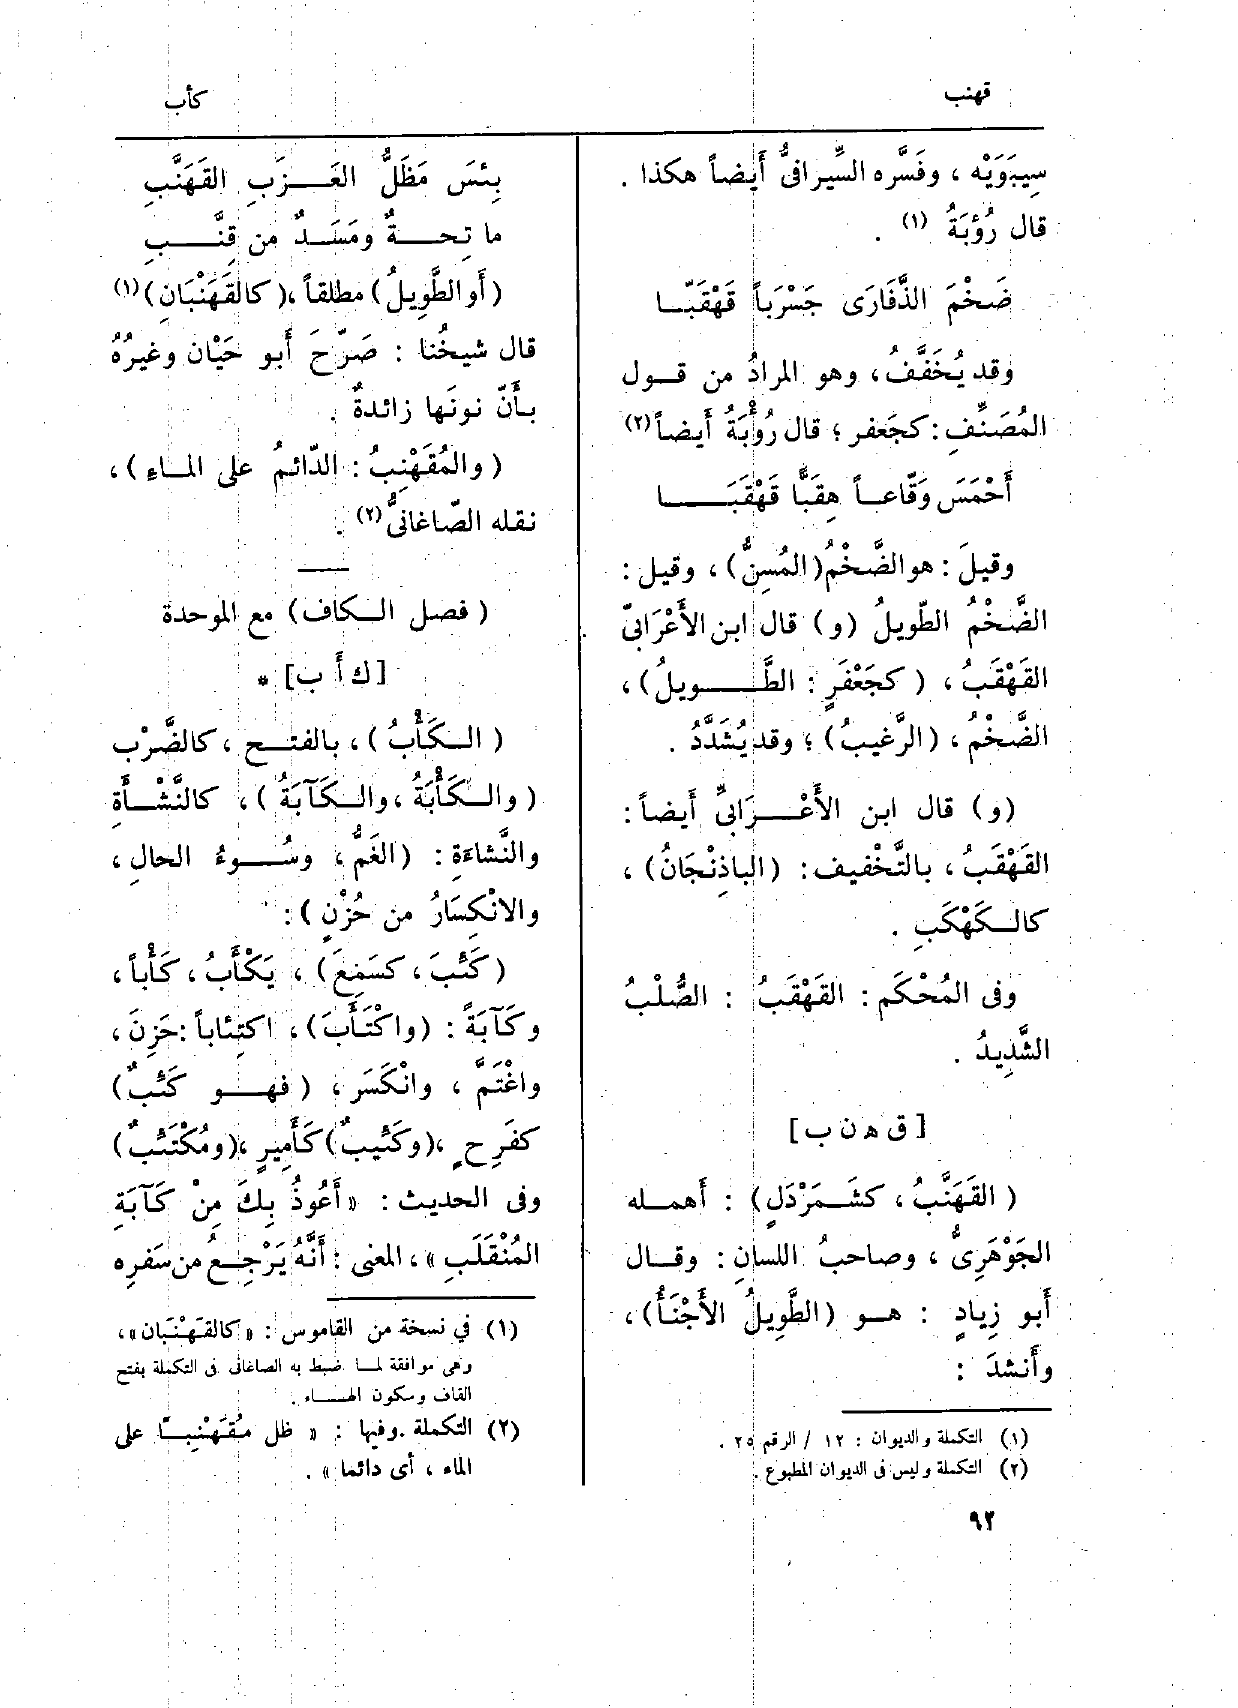 قهنب
كأب
سِيبَوَيْه ، وفَسَّره السِّيرافىُّ أَيضاً هكذا .
قال رُؤبَةُ (١) .
ضَخْمَ الذَّفَارَى جَسْرَباً قَهْقَبَّـا
وقد يُخَفَّفُ ، وهو المرادُ من قـول
المُصَنِّفِ : كجَعفر ؛ قال رُؤْبَةُ أَيضاً (٢)
أَحْمَسَ وَقَّاعـاً هِقَبًّا قَهْقَبَـــا
وقيلَ : هو الضَّخْمُ (المُسِنُّ) ، وقيل :
الضَّخْمُ الطَّويلُ (و) قال ابن الأَعْرَابىّ
القَهْقَبُ ، ( كجَعْفَرٍ : الطَّـــويلُ) ،
الضَّخْمُ ، (الرَّغيبُ) ؛ وقد يُشَدَّدُ .
(و) قال ابن الأَعْـــرَابىِّ أَيضاً :
القَهْقَبُ ، بالتَّخْفيف : (الباذِنْجَانُ) ،
كالـكَهْكَبِ .
وفى المُحْكَم : القَهْقَبُ : الصُّلْبُ
الشَّدِيدُ .
[ ق ه ن ب ]
( القَهَنَّبُ ، كشَـمَرْدَلٍ) : أهمـله
الجَوْهَرِىُّ ، وصاحبُ اللسانِ : وقـال
أَبو زِيادٍ : هـو (الطَّوِيلُ الأَجْنَأُ) ،
وأَنشدَ :
(١) التكملة والديوان : ١٢ / الرقم ٢٥ .
(٢) التكملة وليس فى الديوان المطبوع .
بِئسَ مَظَلُّ العَـــزَبِ القَهَنَّبِ
ما تِحـــةٌ ومَسَـدٌ من قِنَّـــبِ
(أَو الطَّوِيلُ) مطلقاً ، ( كالقَهَنْبَانِ) (١)
قال شيخُنا : صَرّحَ أَبو حَيّان وغيرُهُ
بأَنّ نونَها زائدةٌ .
(والمُقَهْنِبُ : الدّائمُ على المـاءِ ) ،
نقله الصّاغانىُّ (٢) .
( فصل الـكاف) مع الموحدة
[ ك أ ب ] *
( الـكَأْبُ ) ، بالفتـح ، كالضَّرْب
( والـكَأْبَةُ ، والـكَآبَةُ ) ، كالنَّشْـأَةِ
والنَّشاءَةِ : (الغَمُّ ، وسُــوءُ الحالِ ،
والانْكِسَارُ من حُزْنٍ ) :
(كَئبَ ، كسَمِعَ ) ، يَكْأَبُ ، كَأْباً ،
وكَآبَةً : (واكْتَأَبَ) ، اكتِئاباً : حَزِنَ ،
واغْتَمَّ ، وانْكَسَر ، (فهـو كَئبٌ)
كفَرِحٍ ، (وكَئيبٌ) كَأَمِيرٍ ، (ومُكْتَئبٌ)
وفى الحديث : « أَعُوذُ بِكَ مِنْ كَآبَةِ
المُنْقَلَبِ » ، المعنى : أَنَّهُ يَرْجِـعُ من سَفره
(١) في نسخة من القاموس : « كالقَهْنَبان » ،
وهى موافقة لمـا ضبط به الصاغانى فى التكملة بفتح
القاف وسكون الهـاء .
(٢) التكملة . وفيها : « ظل مُقَهْنِبـًا على
الماء ، أى دائما » .
٩٢